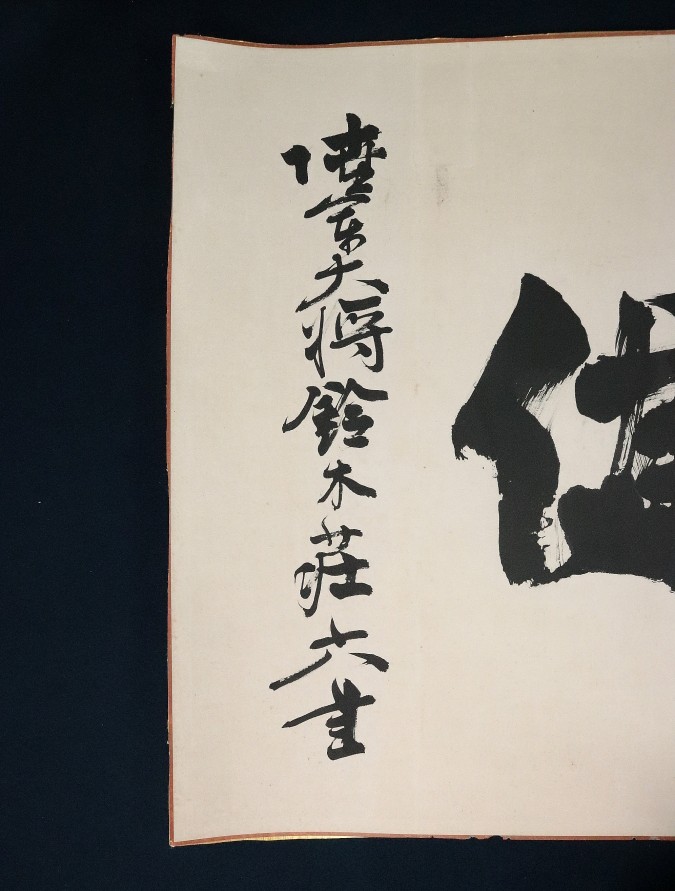 陸軍大将鈴木荘六書